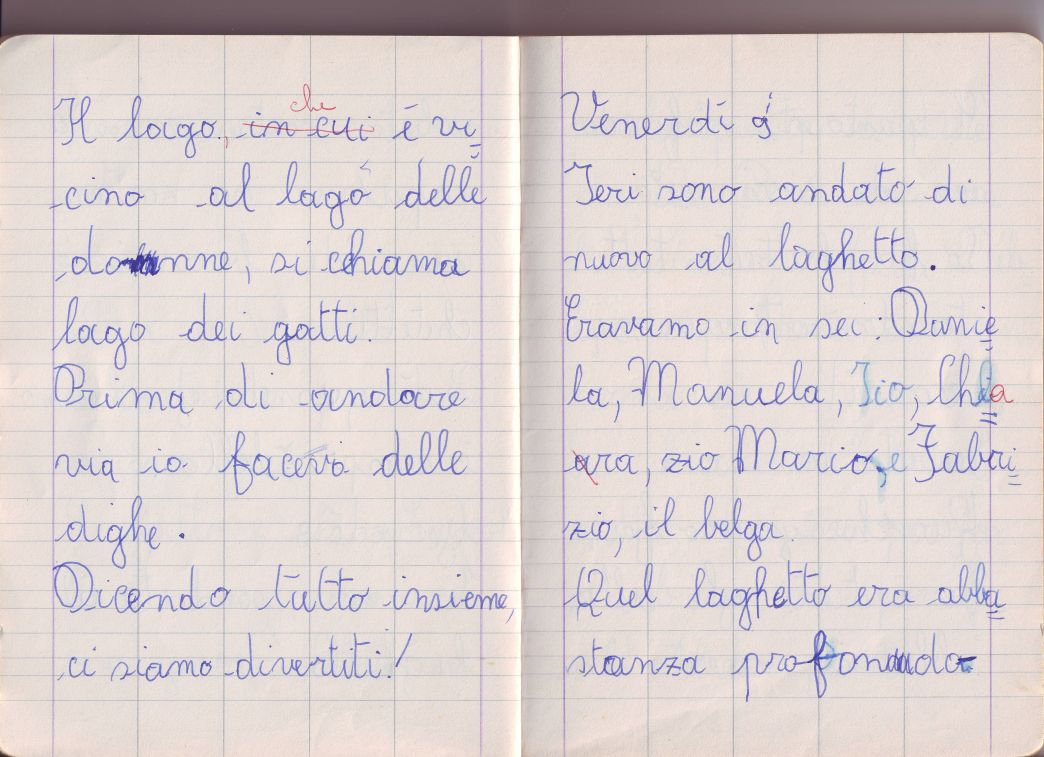 che
Il lago, in cui é vi
cino al lago delle
donne, si chiama
lago dei gatti.
Prima di andare
via io facevo delle
dighe.
Dicendo tutto insieme,
ci siamo divertiti!
Venerdí
Ieri sono andato di
nuovo al laghetto.
Eravamo in sei: Danie
la, Manuela, Io, Chia
ara, zio Mario, e Fabri
zio, il belga.
Quel laghetto era abba
stanza profondo